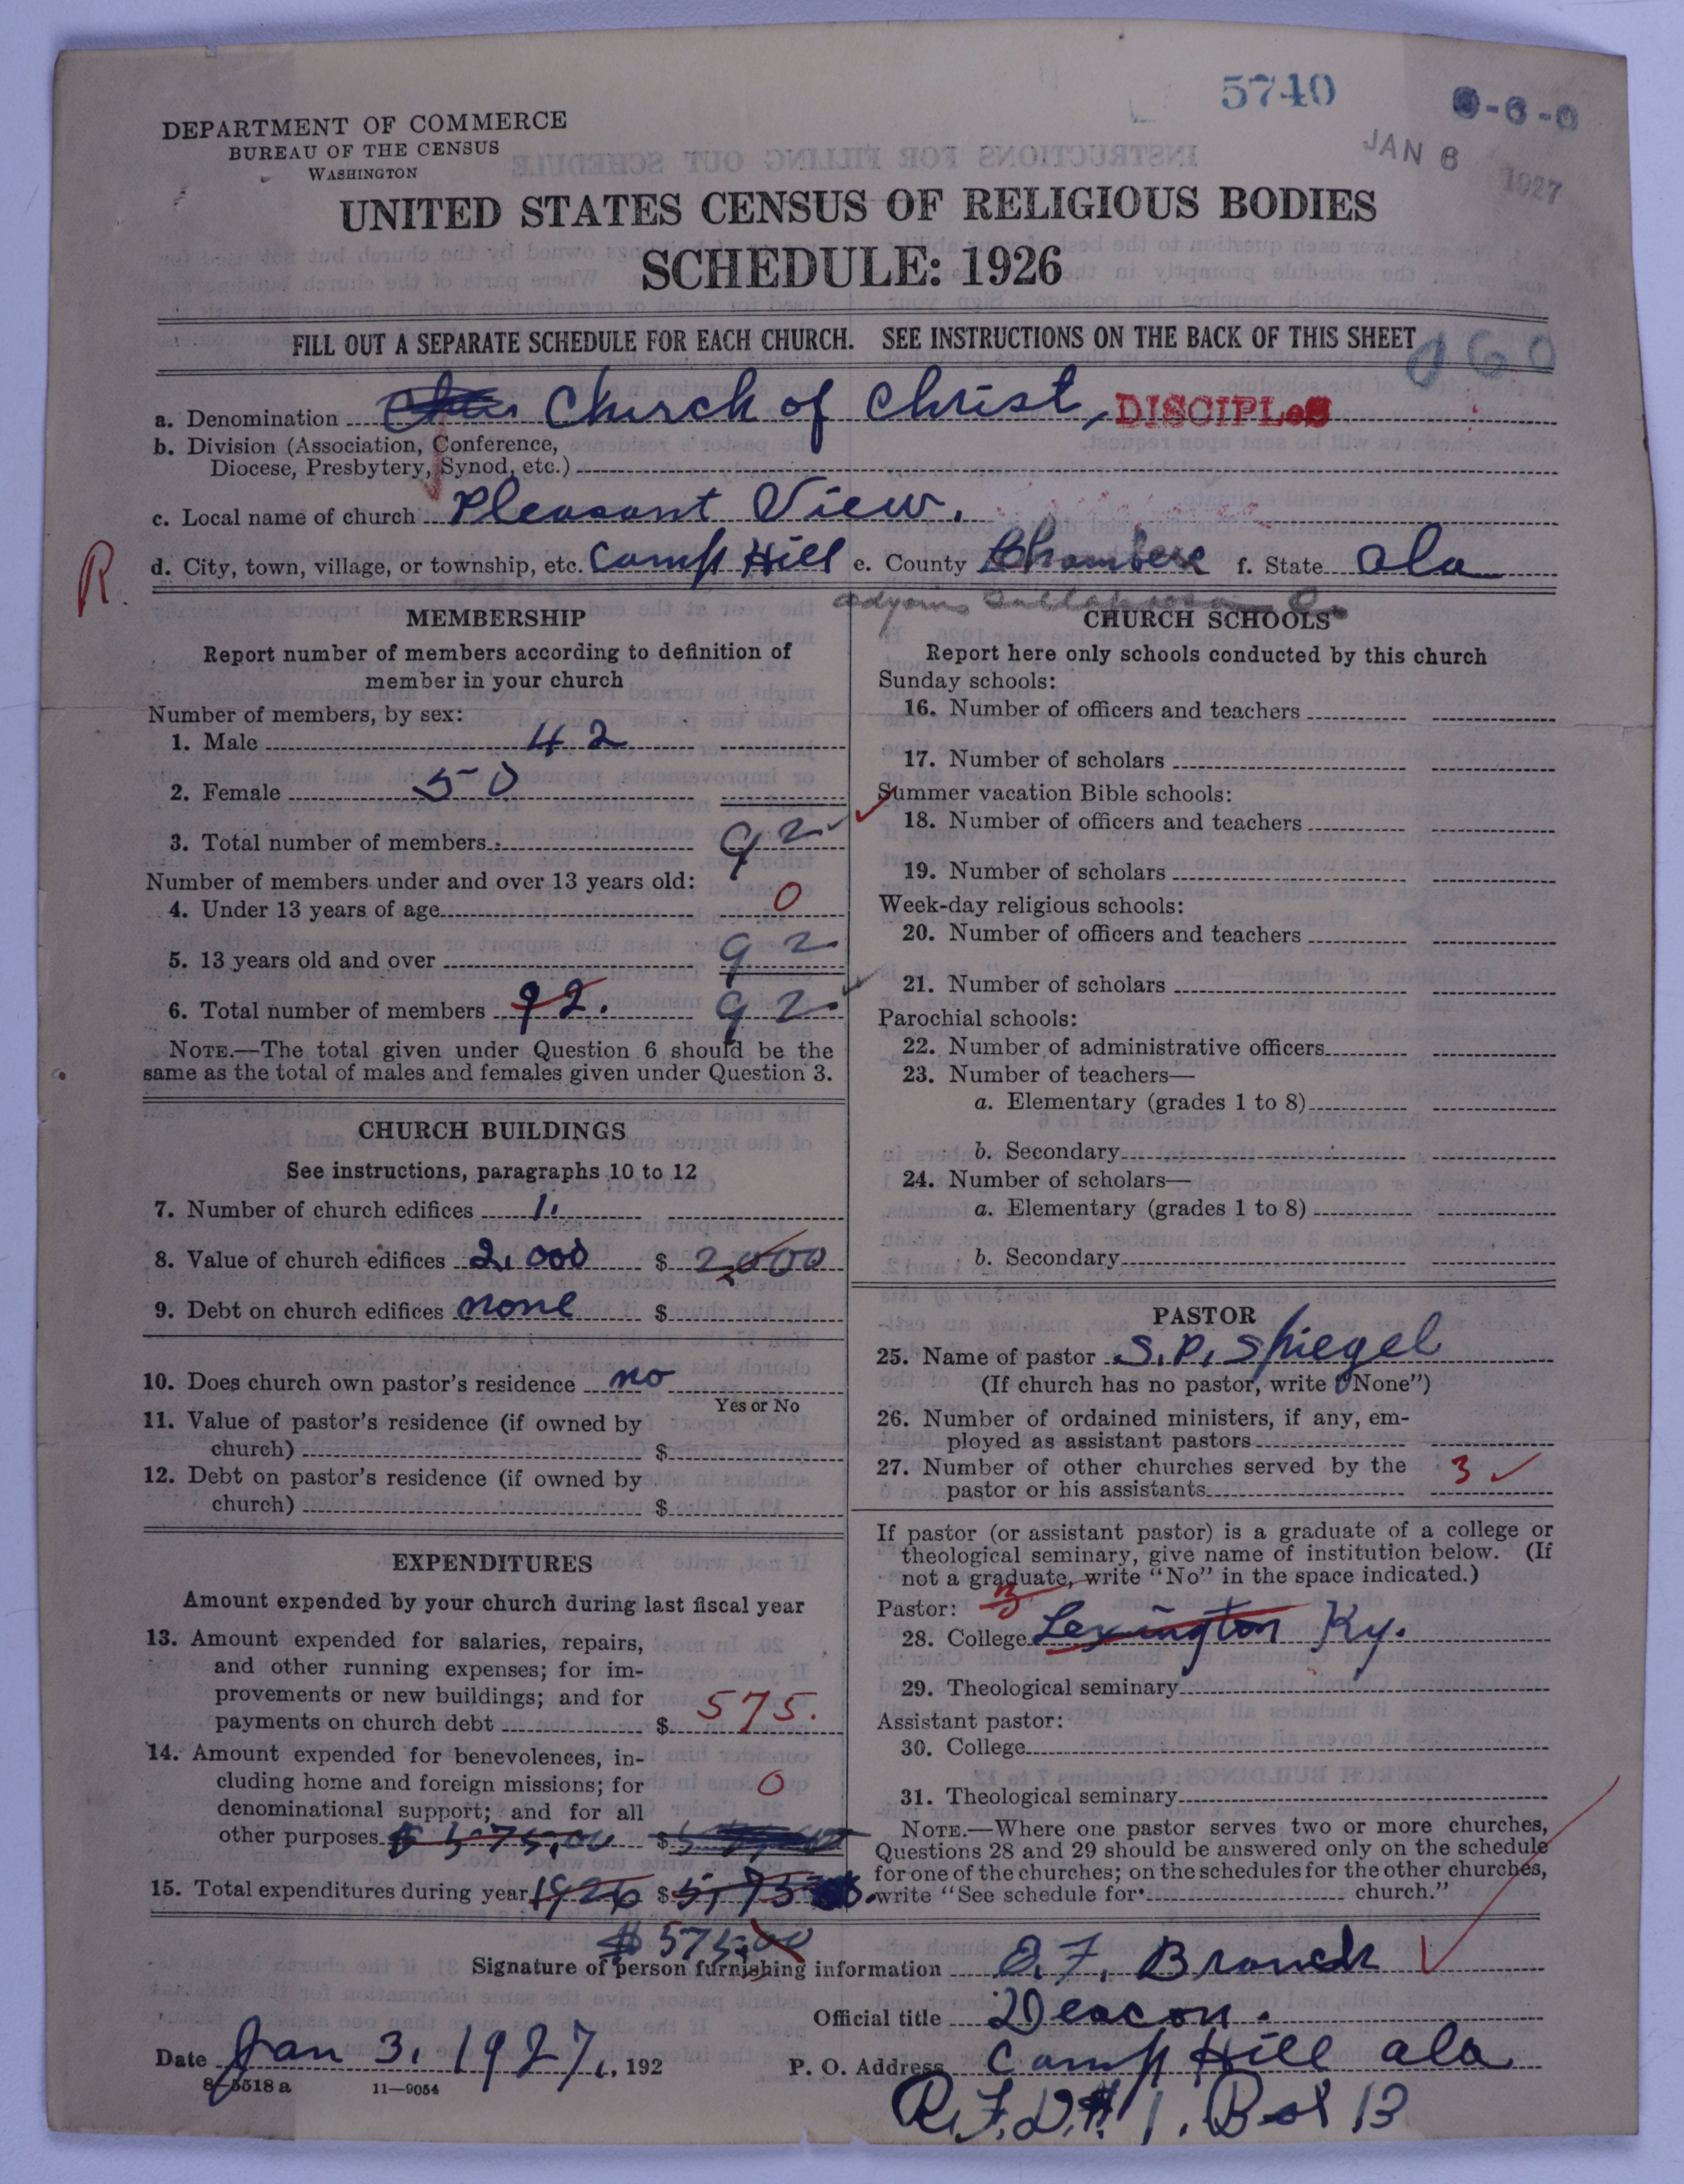 5740
0-6-0
JAN 6 1927
DEPARTMENT OF COMMERCE
BUREAU OF THE CENSUS
WASHINGTON
UNITED STATES CENSUS OF RELIGIOUS BODIES
SCHEDULE: 1926
FILL OUT A SEPARATE SCHEDULE FOR EACH CHURCH. SEE INSTRUCTIONS ON THE BACK OF THIS SHEET
060
a. Denomination Church of Christ, DISCIPLES
b. Division (Association, Conference,
Diocese, Presbytery, Synod, etc.)
c. Local name of church Pleasant View.
R. d. City, town, village, or township, etc. Camp Hill e. County Chambers f. State Ala
MEMBERSHIP
Report number of members according to definition of
member in your church
Number of members, by sex:
1. Male 42
2. Female 50
3. Total number of members 92
Number of members under and over 13 years old:
4. Under 13 years of age 0
5. 13 years old and over 92
6. Total number of members 92. 92
NOTE.—The total given under Question 6 should be the
same as the total of males and females given under Question 3.
CHURCH BUILDINGS
See instructions, paragraphs 10 to 12
7. Number of church edifices 1.
8. Value of church edifices 2,000 $ 2000
9. Debt on church edifices none $
10. Does church own pastor's residence no
Yes or No
11. Value of pastor's residence (if owned by
church) $
12. Debt on pastor's residence (if owned by
church) $
EXPENDITURES
Amount expended by your church during last fiscal year
13. Amount expended for salaries, repairs,
and other running expenses; for im-
provements or new buildings; and for
payments on church debt $ 575.
14. Amount expended for benevolences, in-
cluding home and foreign missions; for
denominational support; and for all
other purposes $ 575,00 $ 0
15. Total expenditures during year 1926 $ 575
$ 575.00
CHURCH SCHOOLS
Report here only schools conducted by this church
Sunday schools:
16. Number of officers and teachers
17. Number of scholars
Summer vacation Bible schools:
18. Number of officers and teachers
19. Number of scholars
Week-day religious schools:
20. Number of officers and teachers
21. Number of scholars
Parochial schools:
22. Number of administrative officers
23. Number of teachers—
a. Elementary (grades 1 to 8)
b. Secondary
24. Number of scholars—
a. Elementary (grades 1 to 8)
b. Secondary
PASTOR
25. Name of pastor S. P. Spiegel
(If church has no pastor, write "None")
26. Number of ordained ministers, if any, em-
ployed as assistant pastors
27. Number of other churches served by the
pastor or his assistants 3
If pastor (or assistant pastor) is a graduate of a college or
theological seminary, give name of institution below. (If
not a graduate, write "No" in the space indicated.)
Pastor: 3
28. College Lexington Ky.
29. Theological seminary
Assistant pastor:
30. College
31. Theological seminary
NOTE.—Where one pastor serves two or more churches,
Questions 28 and 29 should be answered only on the schedule
for one of the churches; on the schedules for the other churches,
write "See schedule for church."
Signature of person furnishing information O. F. Branch
Official title Deacon.
Date Jan 3, 1927, 192
P. O. Address Camp Hill Ala
8-5518 a 11—9054
R.F.D. # 1. Box 13